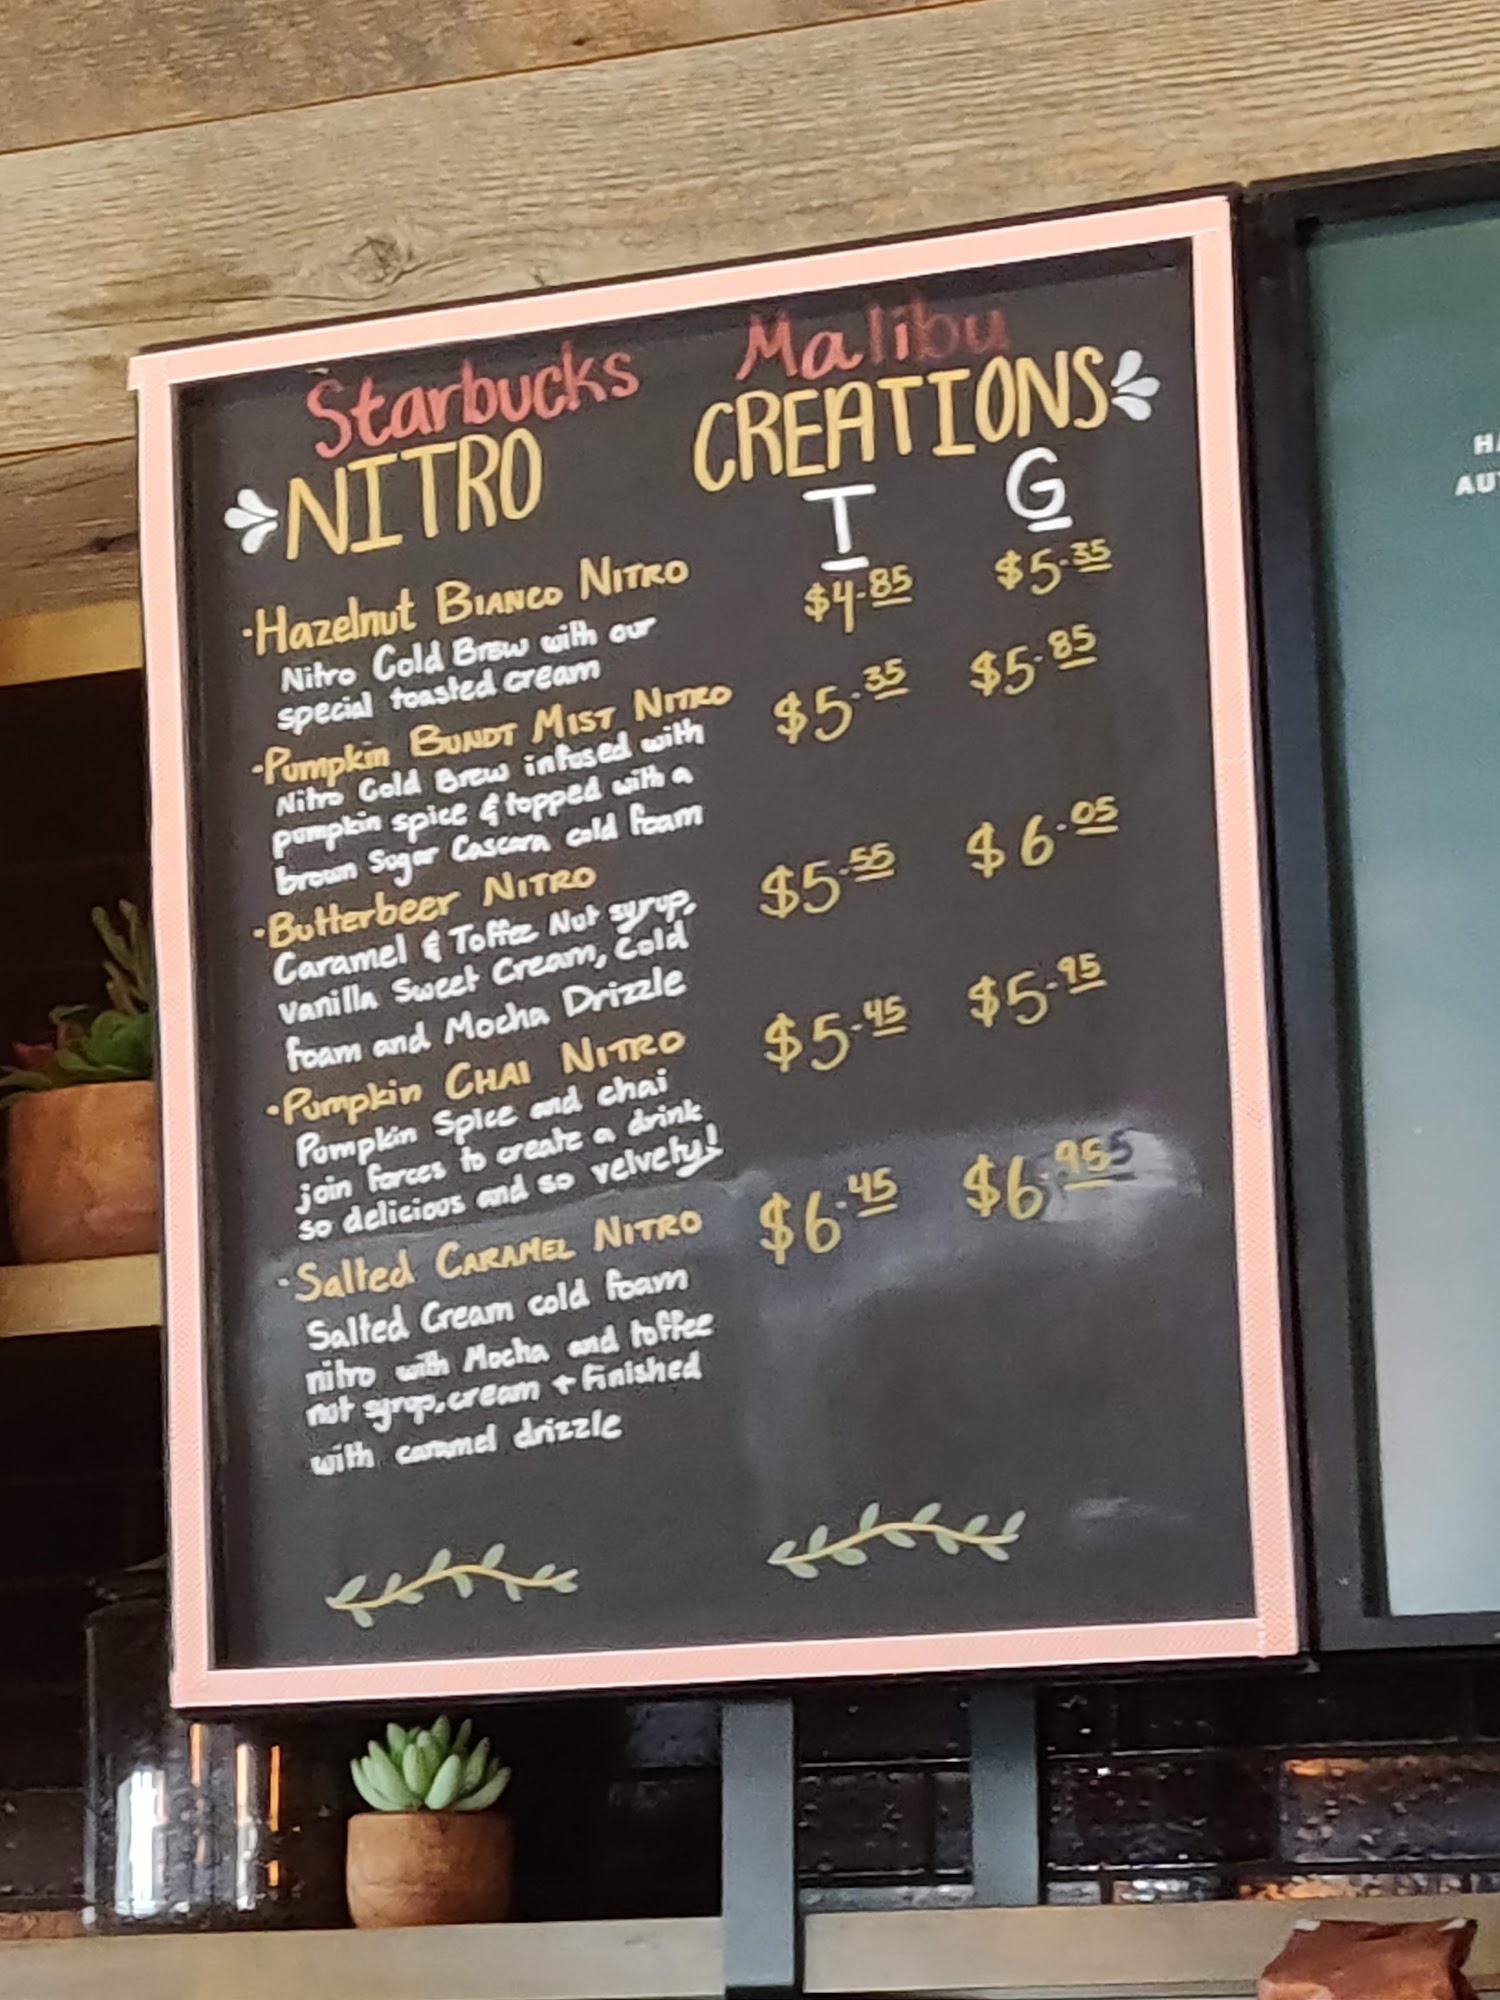 Starbucks Malibu
NITRO CREATIONS
T G
·Hazelnut BIANCO NITRO $4.85 $5.35
Nitro Cold Brew with our
special toasted cream
·Pumpkin BUNDT MIST NITRO $5.35 $5.85
Nitro Cold Brew infused with
pumpkin spice & topped with a
brown Sugar Cascara cold foam
·Butterbeer NITRO $5.55 $6.05
Caramel & Toffee Nut syrup,
Vanilla Sweet Cream, Cold
foam and Mocha Drizzle
·Pumpkin CHAI NITRO $5.45 $5.95
Pumpkin Spice and chai
join forces to create a drink
so delicious and so velvety!
·Salted CARAMEL NITRO $6.45 $6.95
Salted Cream cold foam
nitro with Mocha and toffee
nut syrup, cream + finished
with caramel drizzle